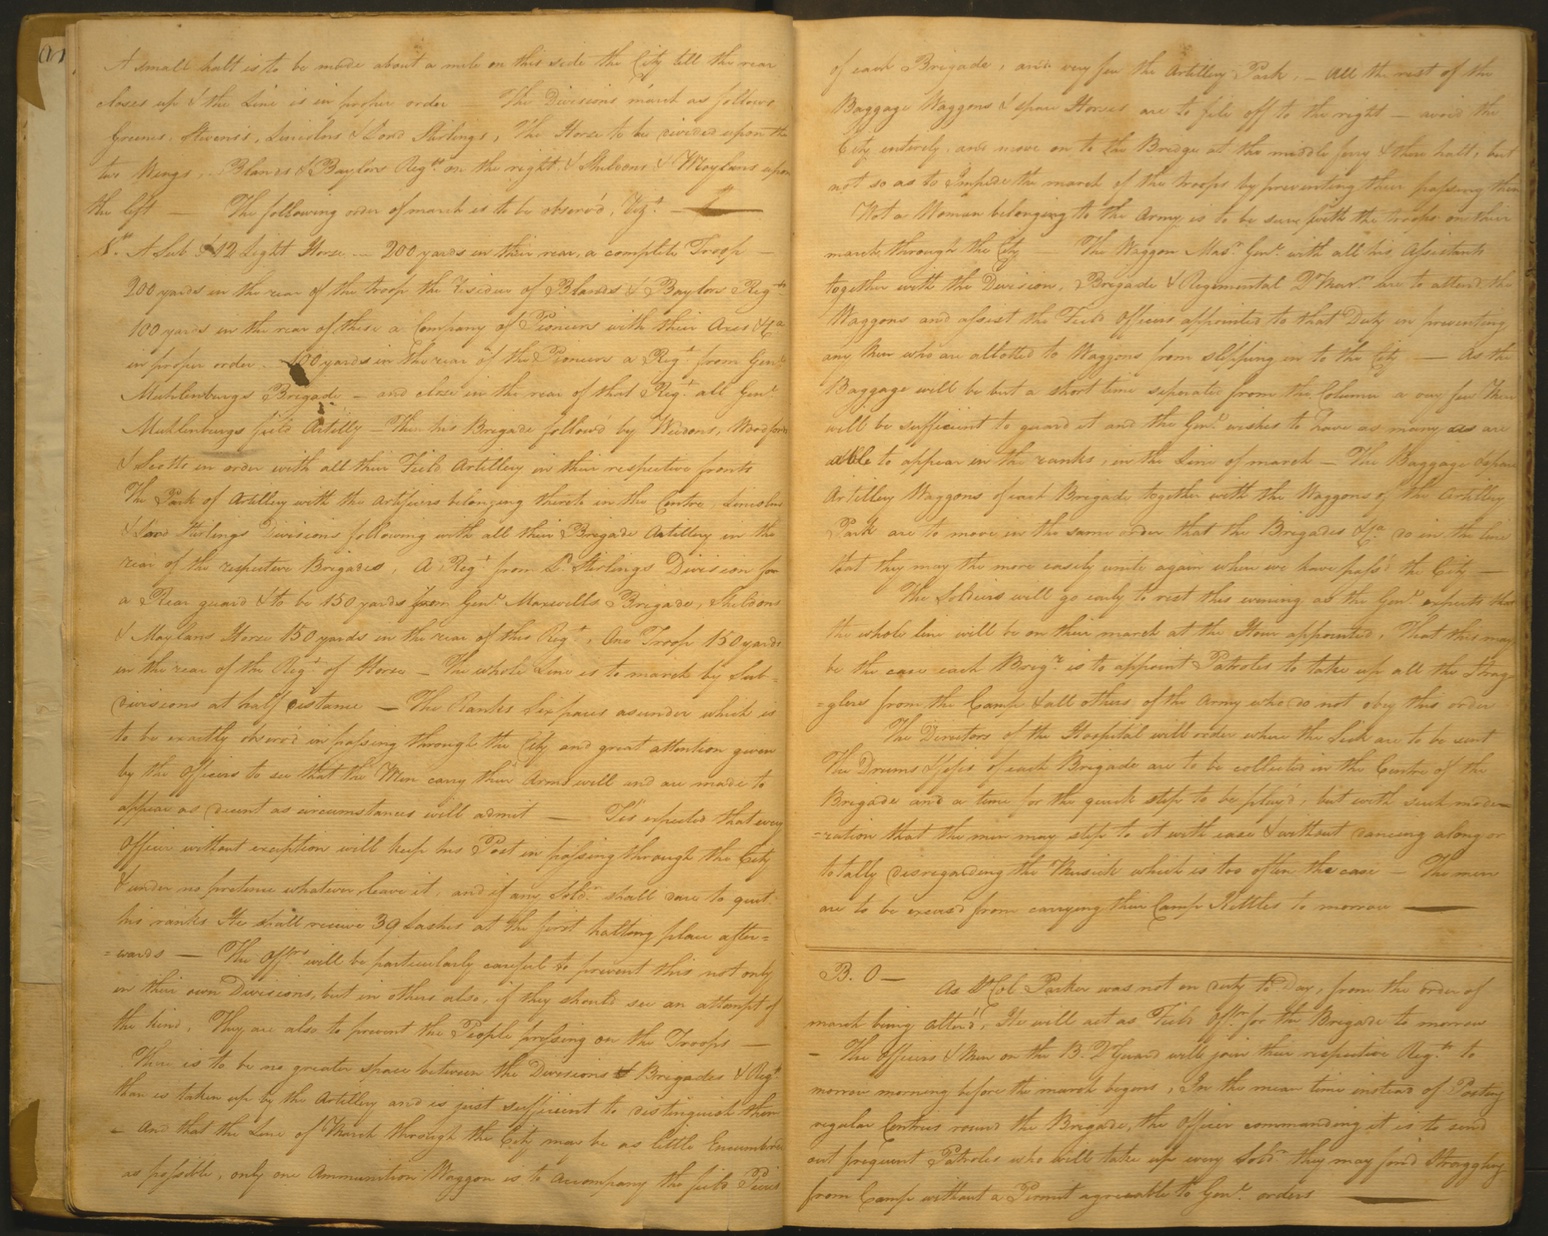 A small halt is to be made about a mile on this side the City till the rear
closes up & the Line is in proper order — The Divisions march as follows
Greenes, Stevens's, Lincolns & Lord Stirlings, The Horse to be divided upon the
two Wings, Blands & Baylors Regts on the right & Sheldons & Moylans upon
the left — The following order of march is to be observ'd, Vizt —
1st. A Sub & 12 Light Horse — 200 yards in their rear, a complete Troop —
200 yards in the rear of the troop the residue of Blands & Baylors Regts
100 yards in the rear of these a Company of Pioneers with their Axes &Ca
in proper order — 100 yards in the rear of the Pioneers a Regt from Genl
Muhlenburgs Brigade — and close in the rear of that Regt all Genl
Muhlenburgs field Artilly — Then his Brigade follow'd by Weedons, Woodfords
& Scotts in order with all their Field Artillery in their respective fronts
The Park of Artillery with the Artificers belonging thereto in the Centre, Lincolns
& Lord Stirlings Divisions following with all their Brigade Artillery in the
rear of the respective Brigades, A Regt from Ld Stirlings Division for
a Rear guard & to be 150 yards from Genl Maxwells Brigade, Sheldons
& Moylans Horse 150 yards in the rear of this Regt, One Troop 150 yards
in the rear of the Regt of Horse — The whole Line is to march by Sub=
divisions at half distance — The Ranks Six paces asunder which is
to be exactly observ'd in passing through the City and great attention given
by the Officers to see that the Men carry their Arms well and are made to
appear as decent as circumstances will admit — Tis expected that every
Officer without exception will keep his Post in passing through the City
& under no pretence whatever leave it, and if any Soldr shall dare to quit
his ranks He shall receive 39 Lashes at the first halting place after=
=wards — The Offrs will be particularly careful to prevent this not only
in their own Divisions, but in others also, if they should see an attempt of
the kind, They are also to prevent the People pressing on the Troops —
There is to be no greater space between the Divisions & Brigades & Regt
than is taken up by the Artillery and is just sufficient to distinguish them
— And that the Line of March through the City may be as little Encumbred
as possible, only one Ammunition Waggon is to accompany the field Pieces
of each Brigade, and very few the Artillery Park, — All the rest of the
Baggage Waggons & spare Horses are to file off to the right — avoid the
City entirely and move on to the Bridge at the middle ferry & there halt, but
not so as to Impede the march of the troops by preventing their passing them
Not a Woman belonging to the Army is to be seen with the troops on their
march through the City — The Waggon Masr Genl with all his Assistants
together with the Division, Brigade & Regimental Q Masrs are to attend the
Waggons and assist the Field Officers appointed to that Duty in preventing
any Men who are allotted to Waggons from slipping in to the City — As the
Baggage will be but a short time seperate from the Column a very few Men
will be sufficient to guard it and the Genl wishes to have as many as are
able to appear in the ranks, in the Line of march — The Baggage & spare
Artillery Waggons of each Brigade together with the Waggons of the Artillery
Park are to move in the same order that the Brigades &Ca do in the line
that they may the more easily unite again when we have pass'd the City —
The Soldiers will go early to rest this evening as the Genl expects that
the whole line will be on their march at the Hour appointed, That this may
be the case each Brigr is to appoint Patroles to take up all the Strag=
=glers from the Camp & all others of the Army who do not obey this order
The Directors of the Hospital will order where the Sick are to be sent
The Drums & fifes of each Brigade are to be collected in the Centre of the
Brigade and a tune for the quick step to be play'd, but with such mode=
=ration that the men may step to it with ease & without dancing along or
totally disregarding the Musick which is too often the case — The men
are to be excus'd from carrying their Camp Kettles to morrow —
B. O — As Lt Col Parker was not on duty to Day, from the order of
march being alter'd, He will act as Field Offr for the Brigade to morrow
— The Officers & Men on the B. Q Guard will join their respective Regts to
morrow morning before the march begins, In the mean time instead of Posting
regular Centries round the Brigade, the Officer commanding it is to send
out frequent Patroles who will take up every Soldr they may find Straggling
from Camp without a Permit agreeable to Genl orders —